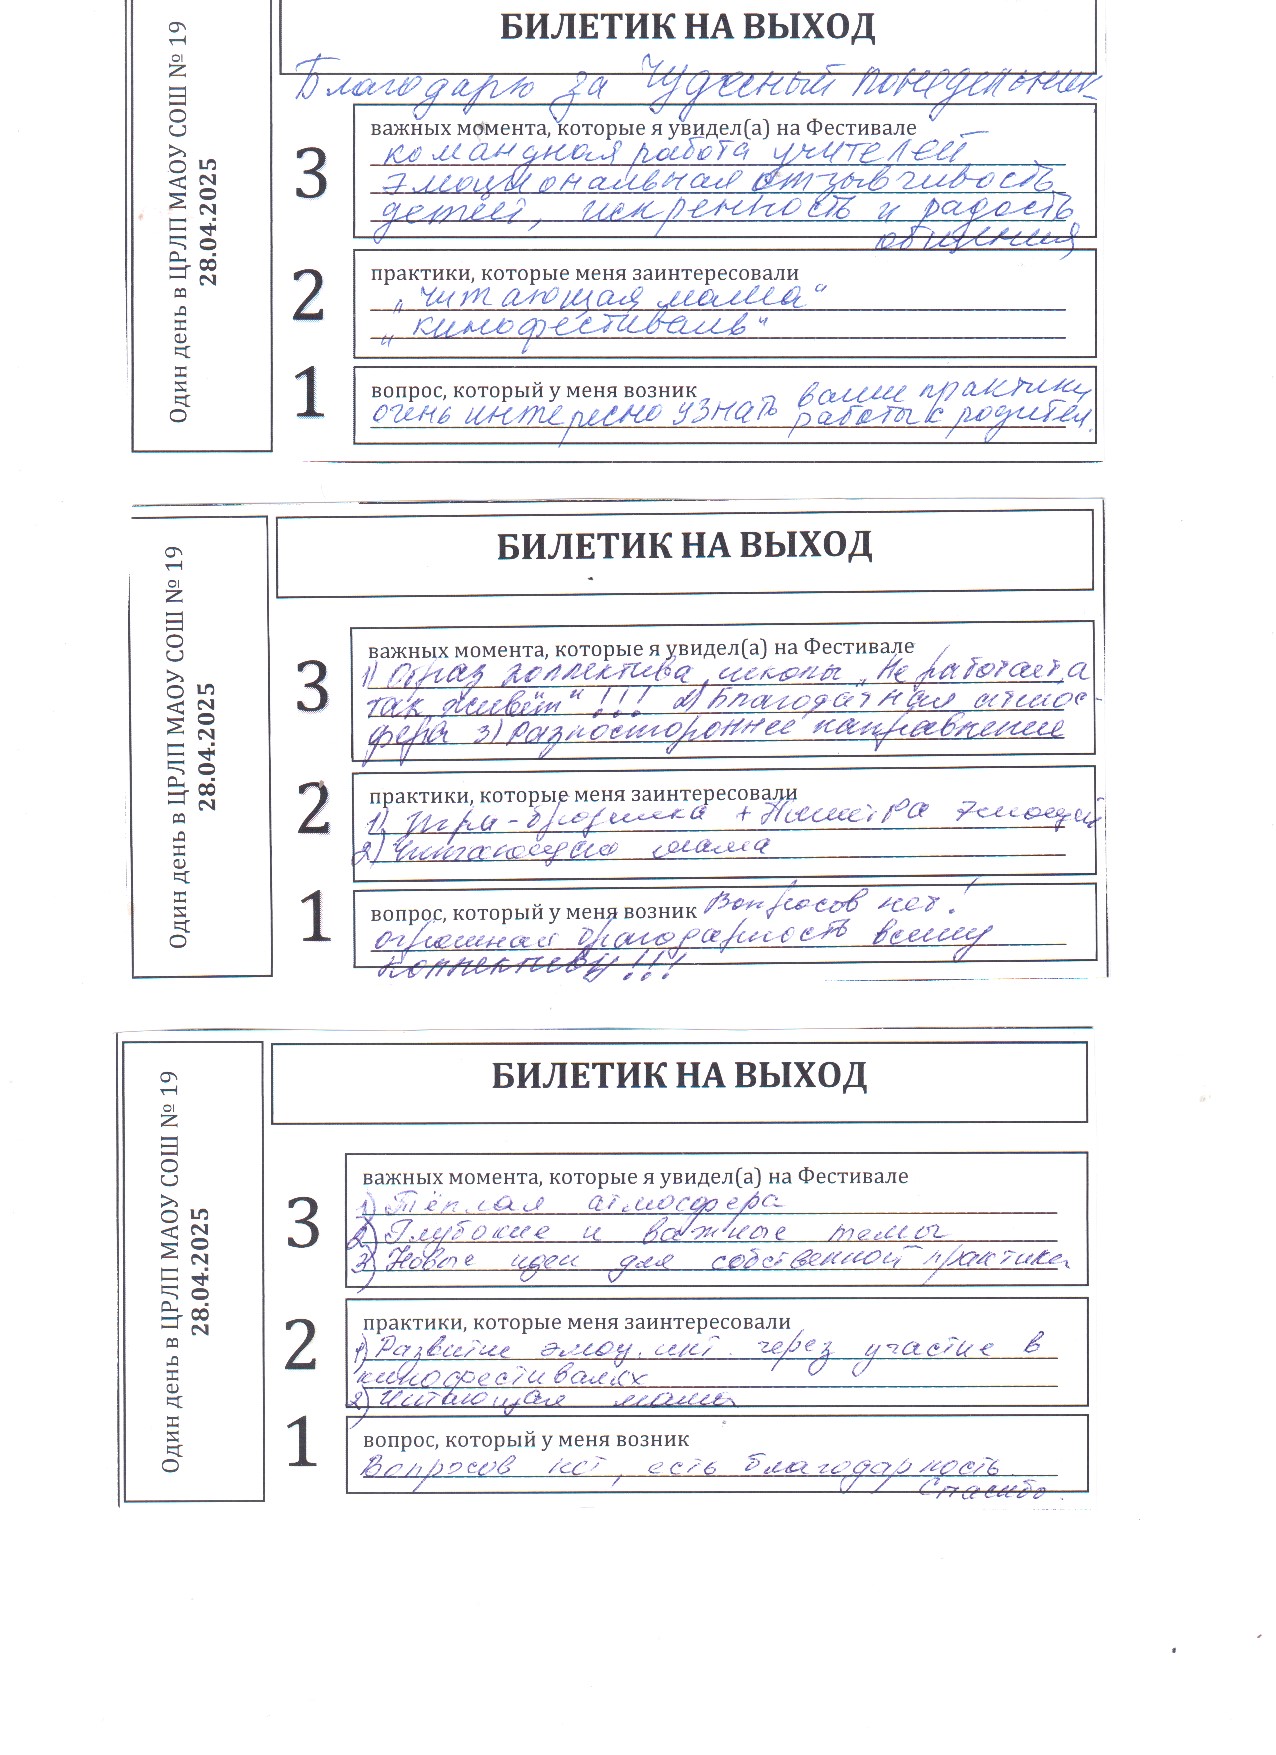 Один день в ЦРЛП МАОУ СОШ № 19
28.04.2025
БИЛЕТИК НА ВЫХОД
Благодарю за Чудесный понедельник.
3
важных момента, которые я увидел(а) на Фестивале
командная работа учителей,
эмоциональная отзывчивость
детей, искренность и радость
общения
2
практики, которые меня заинтересовали
„Читающая мама“
„Кинофестиваль“
1
вопрос, который у меня возник ваши практики
очень интересно узнать работы с родител.
Один день в ЦРЛП МАОУ СОШ № 19
28.04.2025
БИЛЕТИК НА ВЫХОД
3
важных момента, которые я увидел(а) на Фестивале
1) Образ коллектива школы „Не работает, а
так живёт“!!! 2) Благодатная атмос-
фера 3) Разностороннее направление
2
практики, которые меня заинтересовали
1) Игра-бродилка + Палитра эмоций
2) Читающая мама
1
вопрос, который у меня возник Вопросов нет!
огромная благодарность всему
коллективу!!!
Один день в ЦРЛП МАОУ СОШ № 19
28.04.2025
БИЛЕТИК НА ВЫХОД
3
важных момента, которые я увидел(а) на Фестивале
1) Тёплая атмосфера
2) Глубокие и важные темы
3) Новые идеи для собственной практики
2
практики, которые меня заинтересовали
1) Развитие эмоц. инт. через участие в
кинофестивалях
2) Читающая мама
1
вопрос, который у меня возник
Вопросов нет, есть благодарность
Спасибо.